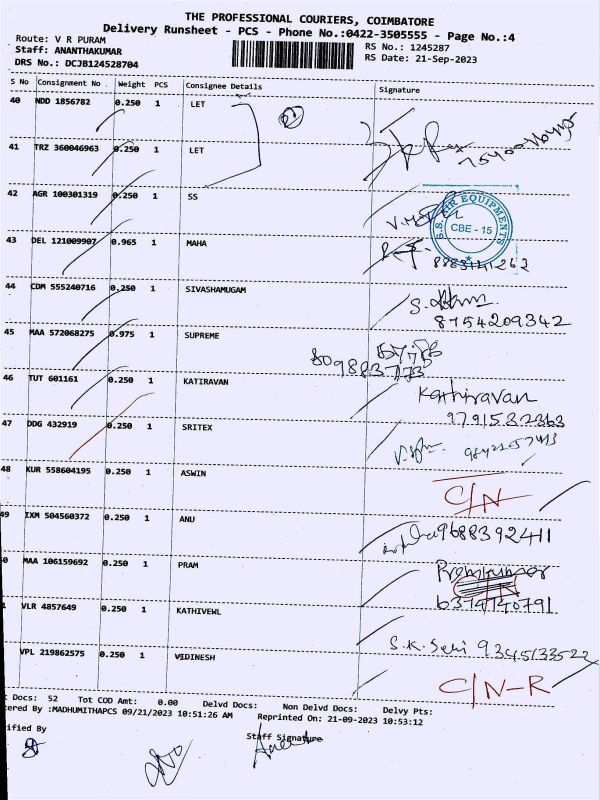 THE PROFESSIONAL COURIERS, COIMBATORE
Delivery Runsheet - PCS - Phone No.:0422-3505555 - Page No.:4
Route: V R PURAM
Staff: ANANTHAKUMAR
DRS No.: DCJB124528704
RS No.: 1245287
RS Date: 21-Sep-2023
S No Consignment No Weight PCS Consignee Details Signature
40 NDD 1856782 0.250 1 LET
41 TRZ 360046963 0.250 1 LET
42 AGR 100301319 0.250 1 SS
CBE - 15
43 DEL 121009907 0.965 1 MAHA
44 CDM 555240716 0.250 1 SIVASHAMUGAM
8754209342
45 MAA 572068275 0.975 1 SUPREME
8098837773
46 TUT 601161 0.250 1 KATIRAVAN
Kathiravan
9791532363
47 DDG 432919 0.250 1 SRITEX
48 KUR 558604195 0.250 1 ASWIN
C/N
49 IXM 504560372 0.250 1 ANU
9688392411
0 MAA 106159692 0.250 1 PRAM
Premkumar
6374740791
1 VLR 4857649 0.250 1 KATHIVEWL
S.K. 9345133522
VPL 219862575 0.250 1 VIDINESH
C/N-R
Docs: 52 Tot COD Amt: 0.00 Delvd Docs: Non Delvd Docs: Delvy Pts:
tered By :MADHUMITHAPCS 09/21/2023 10:51:26 AM Reprinted On: 21-09-2023 10:53:12
ified By Staff Signature